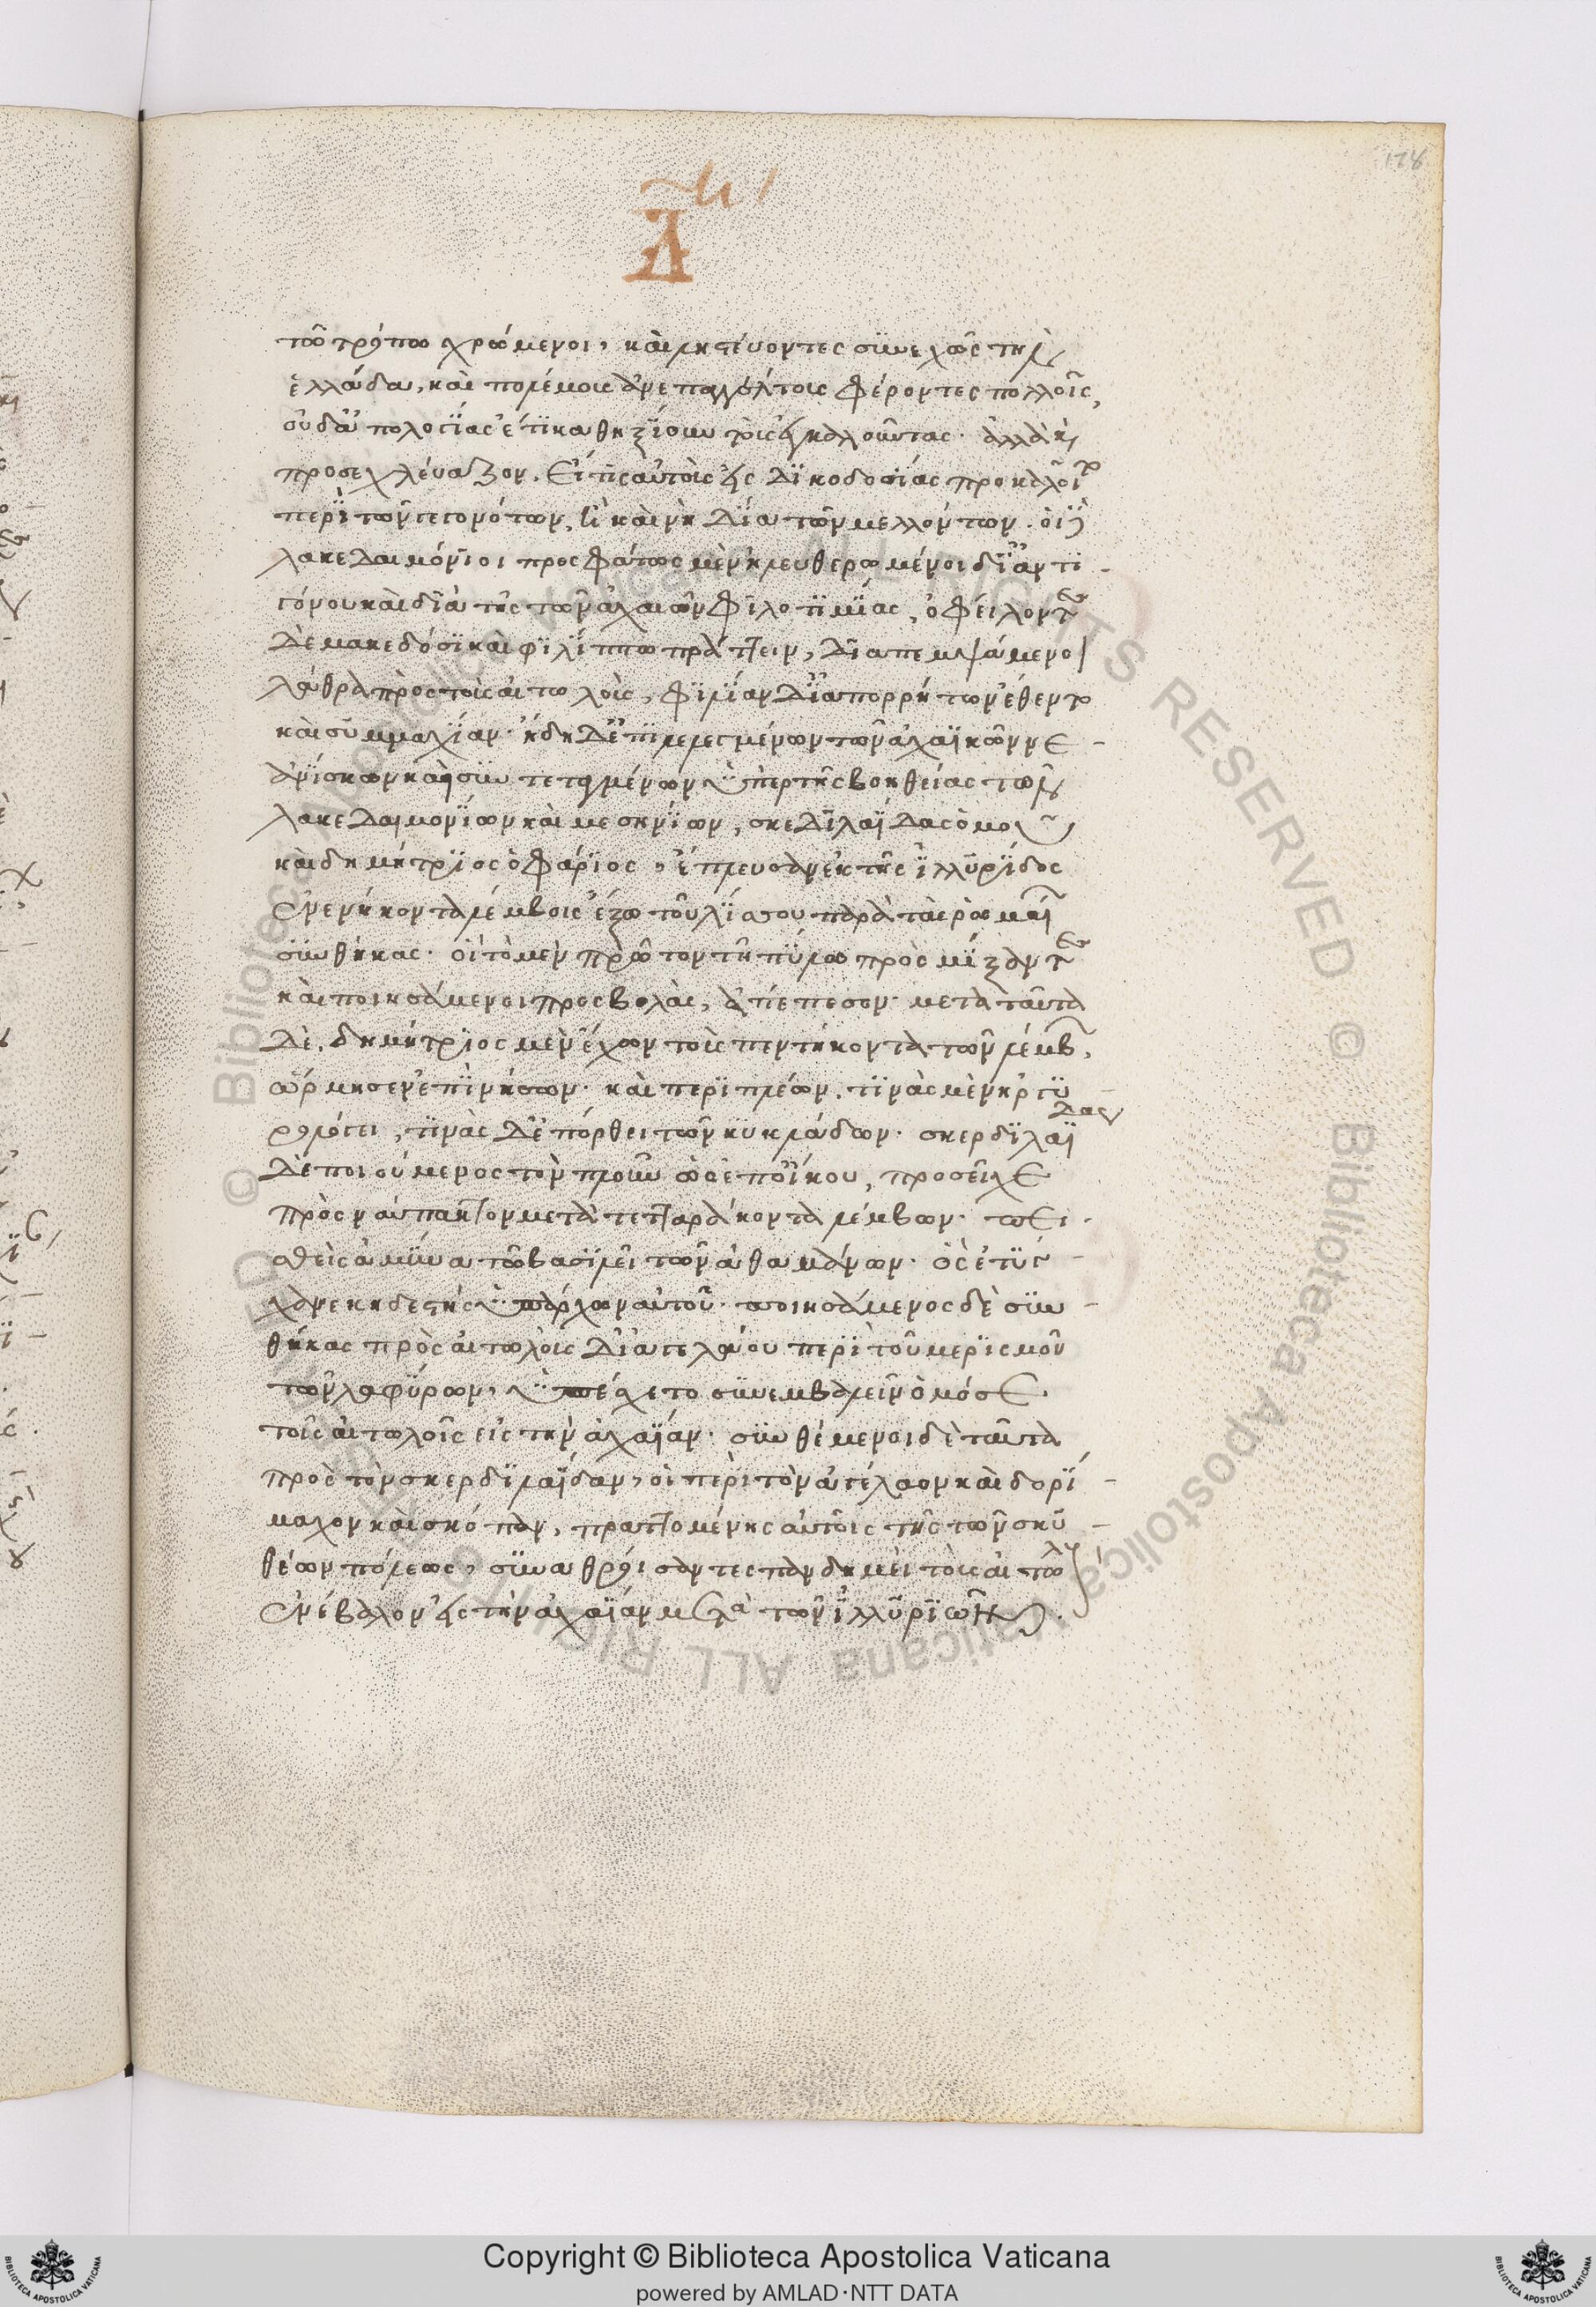 Δ
τῶ τρόπω χρώμενοι, καὶ ληστεύοντες συνεχῶς τὴν
ἑλλάδα, καὶ πολέμοις ἀνεπαγγέλτοις φέροντες πολλοῖς,
οὐδ' ἀπολογίας ἔτι καθηξίουν τοὺς ἐγκαλοῦντας. ἀλλὰ κỳ
προσεχλεύαζον. εἴ τις αὐτοὺς εἰς δικοδοσίας προκαλοῖτο
περὶ τῶν γεγονότων, ἢ καὶ νὴ δία τῶν μελλόντων. οἱ δὲ
λακεδαιμόνιοι προσφάτως μὲν ἠλευθερωμένοι δι' ἀντι -
γόνου καὶ διὰ τῆς τῶν ἀχαιῶν φιλοτιμίας, ὀφείλοντες
δὲ μακεδόσι καὶ φιλίππω πράττειν, διαπεμψάμενοι
λάθρα πρὸς τοὺς αἰτωλοὺς, φιλίαν δι' ἀπορρήτων ἔθεντο
καὶ συμμαχίαν. ἤδη δ' ἐπιλελεγμένων τῶν ἀχαϊκῶν νε -
ανίσκων καὶ συντεταγμένων ὑπὲρ τῆς βοηθείας τῶν
λακεδαιμονίων καὶ μεσηνίων, σκεδιλαΐδας ὁμοῦ
καὶ δημήτριος ὁ φάριος, ἔπλευσαν ἐκ τῆς ἰλλυρίδος
ἐνενήκοντα λέμβοις ἔξω τοῦ λίσσου παρὰ τὰς ῥωμαΐ
συνθήκας. οἳ τὸ μὲν πρῶτον τῆ πύλω προσμίξαντες
καὶ ποιησάμενοι προσβολὰς, ἀπέπεσον. μετὰ ταῦτα
δὲ, δημήτριος μὲν ἔχων τοὺς πεντήκοντα τῶν λέμβ,
ὥρμησεν ἐπὶ νήσων. καὶ περιπλέων, τινὰς μὲν ἠργυ
ρολόγει, τινὰς δ' ἐπόρθει τῶν κυκλάδων. σκερδιλαΐδας
δὲ ποιούμενος τὸν πλοῦν ὡς ἐπ' οἴκου, προσεῖχε
πρὸς ναύπακτον μετὰ τετταράκοντα λέμβων. πει -
σθεὶς ἀμύνα τῶ βασιλεῖ τῶν ἀθαμάνων. ὃς ἐτύγ -
χανε κηδεστὴς ὑπάρχων αὐτοῦ. ποιησάμενος δὲ συν -
θήκας πρὸς αἰτωλοὺς δι' ἀγελάου περὶ τοῦ μερισμοῦ
τῶν λαφύρων, ὑπέσχετο συνεμβαλεῖν ὁμόσε
τοῖς αἰτωλοῖς εἰς τὴν ἀχαΐαν. συνθέμενοι δὲ ταῦτα
πρὸς τὸν σκερδιλαΐδαν, οἱ περὶ τὸν ἀγέλαον καὶ δορί -
μαχον καὶ σκόπαν, πραττομένης αὐτοῖς τῆς τῶν σκυ -
θέων πόλεως, συναθροίσαντες πανδημεὶ τοὺς αἰτωλοὺς
ἐνέβαλον εἰς τὴν ἀχαΐαν μετὰ τῶν ἰλλυριῶν.